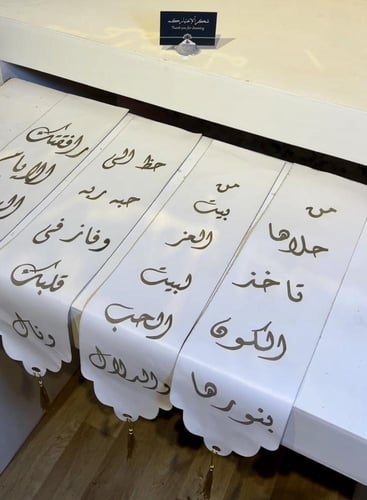 شكراً لاختياركم
Thank you for choosing
من
حلاها
تاخذ
الكون
بنورها
من
بيت
العز
لبيت
الحب
والدلال
حظ الي
حبه ربه
وفاز في
قلبك
رافقتك
الايام
وفال